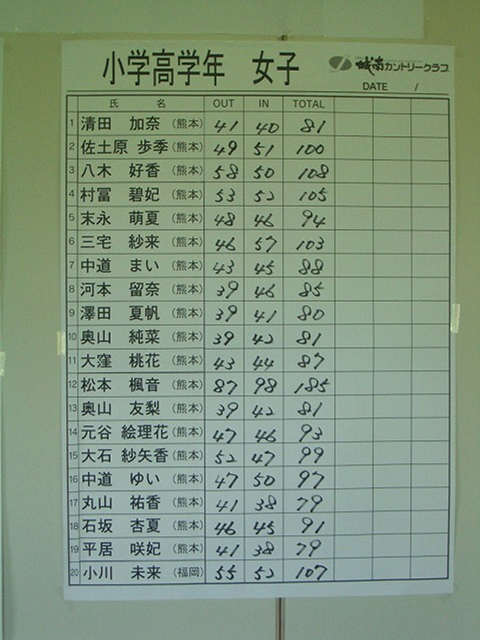 小学高学年 女子
城南カントリークラブ
DATE /
氏 名 OUT IN TOTAL
1 清田 加奈 (熊本) 41 40 81
2 佐土原 歩季 (熊本) 49 51 100
3 八木 好香 (熊本) 58 50 108
4 村冨 碧妃 (熊本) 53 52 105
5 末永 萌夏 (熊本) 48 46 94
6 三宅 紗来 (熊本) 46 57 103
7 中道 まい (熊本) 43 45 88
8 河本 留奈 (熊本) 39 46 85
9 澤田 夏帆 (熊本) 39 41 80
10 奥山 純菜 (熊本) 39 42 81
11 大窪 桃花 (熊本) 43 44 87
12 松本 楓音 (熊本) 87 98 185
13 奥山 友梨 (熊本) 39 42 81
14 元谷 絵理花 (熊本) 47 46 93
15 大石 紗矢香 (熊本) 52 47 99
16 中道 ゆい (熊本) 47 50 97
17 丸山 祐香 (熊本) 41 38 79
18 石坂 杏夏 (熊本) 46 45 91
19 平居 咲妃 (熊本) 41 38 79
20 小川 未来 (福岡) 55 52 107